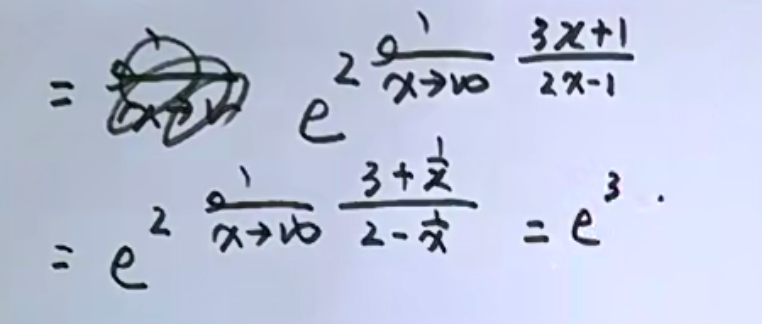 = e^{2 \lim_{x→∞} \frac{3x+1}{2x-1}}
= e^{2 \lim_{x→∞} \frac{3+\frac{1}{x}}{2-\frac{1}{x}}} = e^3.